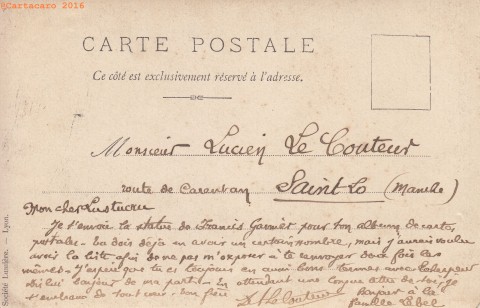 ©Cartacaro 2016
CARTE POSTALE
Ce côté est exclusivement réservé à l'adresse.
Monsieur Lucien Le Couteur
route de Carentan Saint Lo (Manche)
Mon cher Lustucru
Je t'envoie la statue de Francis Garnier pour ton album de cartes
postales. Tu dois déjà en avoir un certain nombre, mais j'aurais voulu
avoir la liste afin de ne pas m'exposer à te renvoyer deux fois les
mêmes. J'espère que tu es toujours en aussi bons termes avec
dis lui bonjour de ma part. En attendant une longue lettre de toi, je
t'embrasse de tout cœur. Ton frère
Le Couteur
Bonjour à la
famille Lebel
Société Lumière. — Lyon.